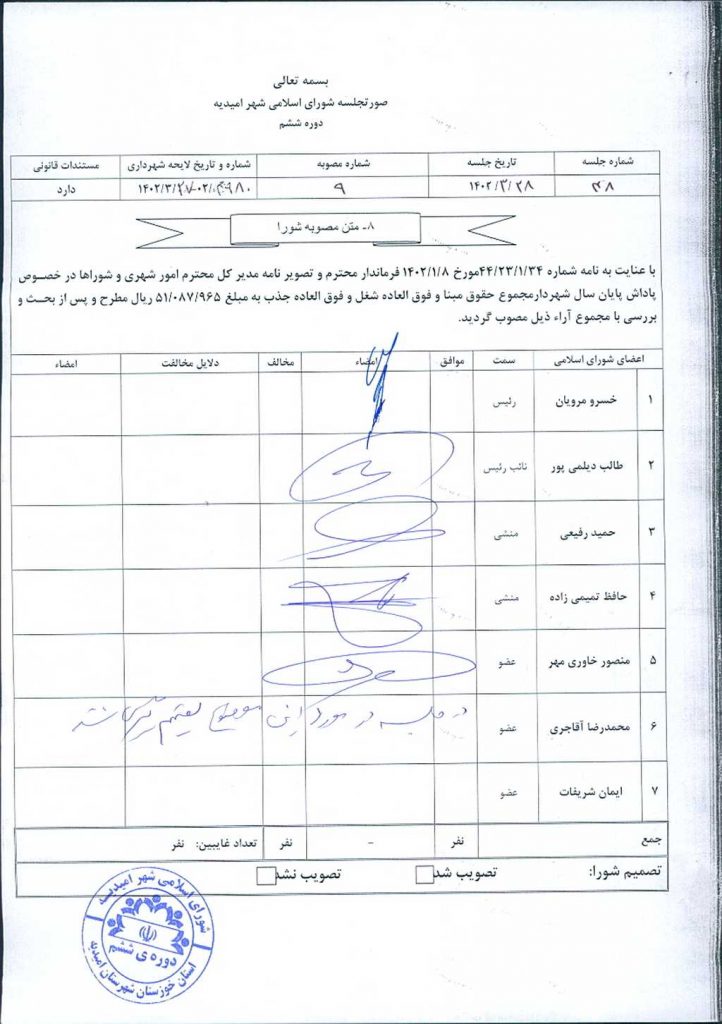 بسمه تعالی
صورتجلسه شورای اسلامی شهر امیدیه
دوره ششم
شماره جلسه تاریخ جلسه شماره مصوبه شماره و تاریخ لایحه شهرداری مستندات قانونی
۱۴۰۲/۳/۲۸ ۹ دارد
۸- متن مصوبه شورا
با عنایت به نامه شماره ۴۴/۲۳/۱/۳۴مورخ ۱۴۰۲/۱/۸ فرماندار محترم و تصویر نامه مدیر کل محترم امور شهری و شوراها در خصوص
پاداش پایان سال شهردارمجموع حقوق مبنا و فوق العاده شغل و فوق العاده جذب به مبلغ ۵۱/۰۸۷/۹۶۵ ریال مطرح و پس از بحث و
بررسی با مجموع آراء ذیل مصوب گردید.
اعضای شورای اسلامی سمت موافق امضاء مخالف دلایل مخالفت امضاء
۱ خسرو مرویان رئیس
۲ طالب دیلمی پور نائب رئیس
۳ حمید رفیعی منشی
۴ حافظ تمیمی زاده منشی
۵ منصور خاوری مهر عضو
۶ محمدرضا آقاجری عضو در جلسه در مورد این موضوع
۷ ایمان شریفات عضو
جمع نفر - نفر تعداد غایبین: نفر
تصمیم شورا: تصویب شد تصویب نشد
شورای اسلامی شهر امیدیه
دوره ی ششم
استان خوزستان شهرستان امیدیه